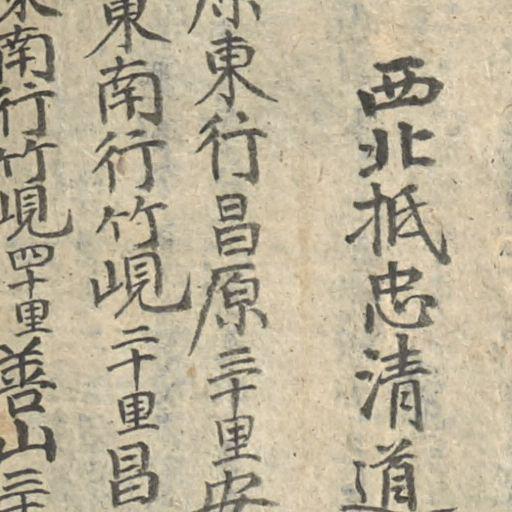 西北抵忠清道
原東行昌原三十里安
東南行竹峴二十里昌
東南行竹峴四十里善山三十